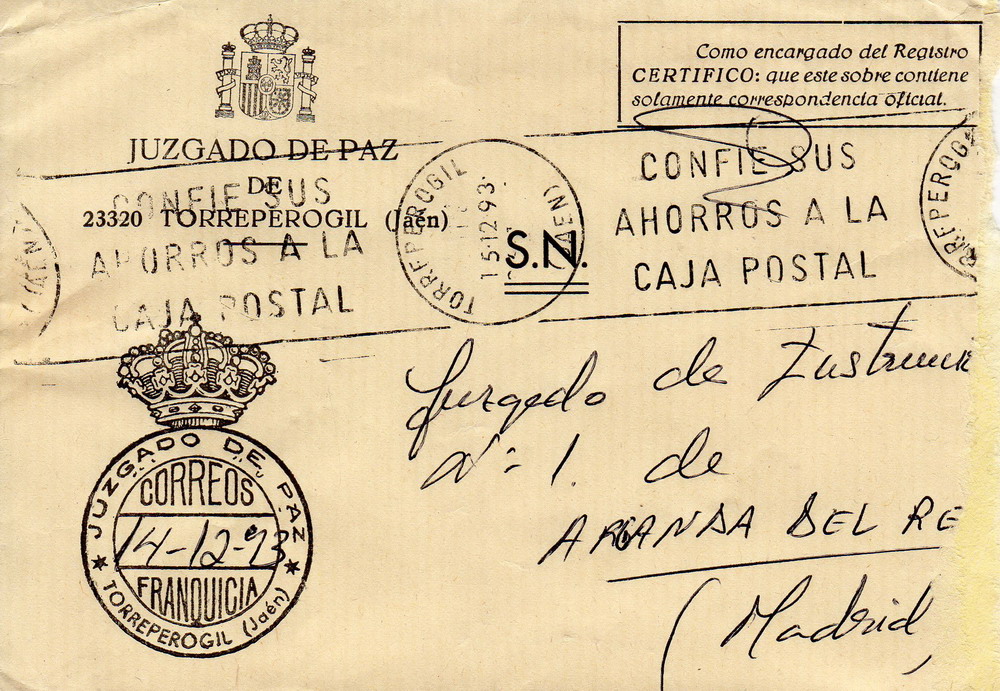 Como encargado del Registro
CERTIFICO: que este sobre contiene
solamente correspondencia oficial.
JUZGADO DE PAZ
DE
23320 TORREPEROGIL (Jaén)
S.N.
CONFIE SUS
AHORROS A LA
CAJA POSTAL
TORREPEROGIL
15.12.93
(JAEN)
CONFIE SUS
AHORROS A LA
CAJA POSTAL
(JAEN)
Juzgado de
Nº 1. de
ARGANDA DEL RE
(Madrid
JUZGADO DE PAZ
CORREOS
14-12-93
FRANQUICIA
TORREPEROGIL (Jaén)